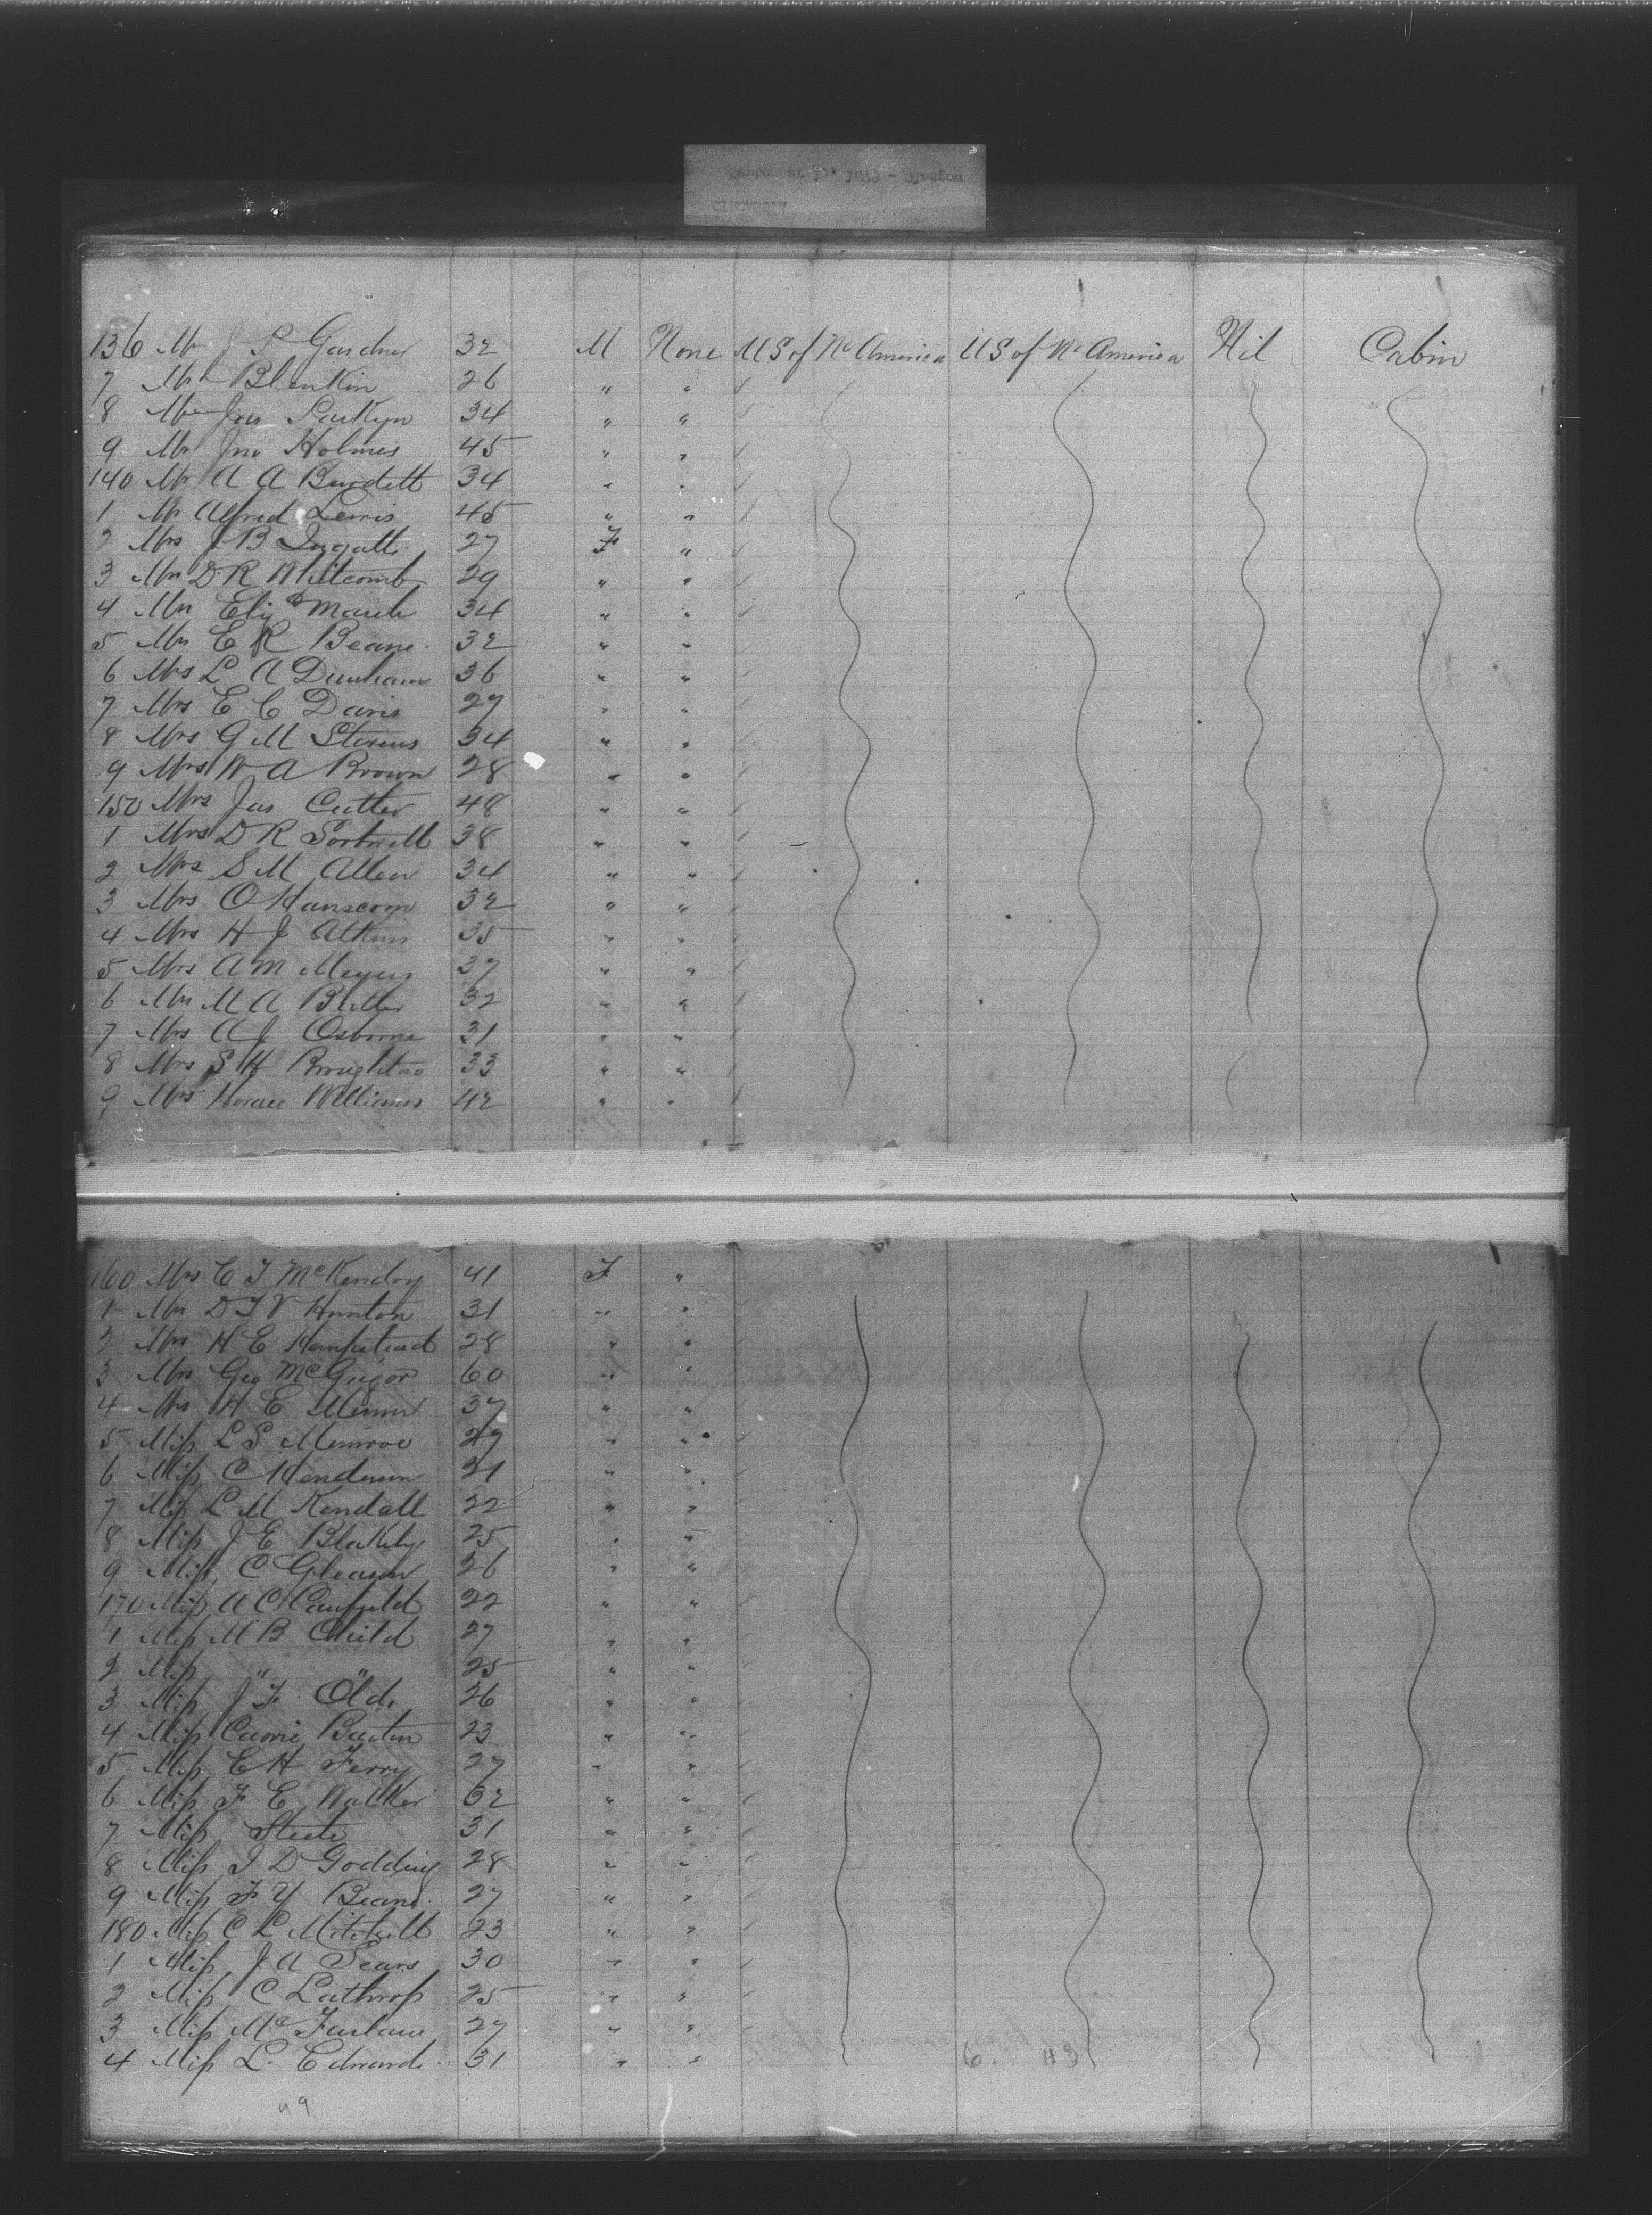 136 Mr J S Gardner 32 M None U S of No America U S of No America Nil Cabin
7 Mr Blenkin 26 " "
8 Mr Jas 34 " "
9 Mr Jno Holmes 45 " "
140 Mr A A Burdett 34 " "
1 Mr Alfred Lewis 45 " "
2 Mrs J B Ingalls 27 F "
3 Mrs D R Whitcomb 29 " "
4 Mrs Eliz March 34 " "
5 Mrs E R Beane 32 " "
6 Mrs L A Dunham 36 " "
7 Mrs E C Davis 27 " "
8 Mrs G M Stevens 34 " "
9 Mrs W A Brown 28 " "
150 Mrs Jas Cutter 48 " "
1 Mrs D R Sortwell 38 " "
2 Mrs S M Allen 34 " "
3 Mrs O Hanscom 32 " "
4 Mrs H J Atkins 35 " "
5 Mrs A M Meyers 37 " "
6 Mrs M A Butler 32 " "
7 Mrs A J Osborne 31 " "
8 Mrs S H Broughton 33 " "
9 Mrs Horace Williams 42 " "
160 Mrs C T McKendry 41 F "
1 Mrs D T V Hunton 31 " "
2 Mrs H E Hempstead 28 " "
3 Mrs Geo McGrigor 60 " "
4 Mrs H E 37 " "
5 Miss L S Munroe 27 " "
6 Miss C Henderson 21 " "
7 Miss L M Kendall 22 " "
8 Miss J E Blakely 25 " "
9 Miss C Gleason 26 " "
170 Miss A C Canfield 22 " "
1 Miss M B Child 27 " "
2 Miss " " 25 " "
3 Miss J F Olds 26 " "
4 Miss Carrie Barton 23 " "
5 Miss E H Ferry 27 " "
6 Miss F E Walker 32 " "
7 Miss Steele 31 " "
8 Miss I D Godding 28 " "
9 Miss F Y Beane 27 " "
180 Miss C L Mitchell 23 " "
1 Miss J A Sears 30 " "
2 Miss C Lathrop 25 " "
3 Miss McFarlane 27 " "
4 Miss L. Edwards 31 " "
6 43
49